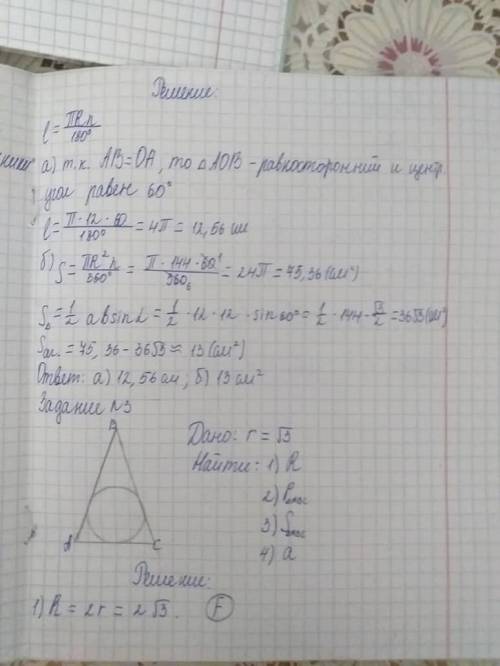 Решение:
l = πRn/180°
а) т.к. AB=OA, то △AOB - равносторонний и центр.
угол равен 60°
l = π · 12 · 60/180° = 4π = 12,56 см
б) S = πR²n/360° = π · 144 · 60¹/360₆ = 24π = 75,36 (см²)
S△ = 1/2 a b sin α = 1/2 · 12 · 12 · sin 60° = 1/2 · 144 · √3/2 = 36√3 (см²)
Sсег. = 75,36 - 36√3 ≈ 13 (см²)
Ответ: а) 12,56 см; б) 13 см²
Задание №3
B
A C
Дано: r = √3
Найти: 1) R
2)
3)
4) a
Решение:
1) R = 2r = 2√3. F